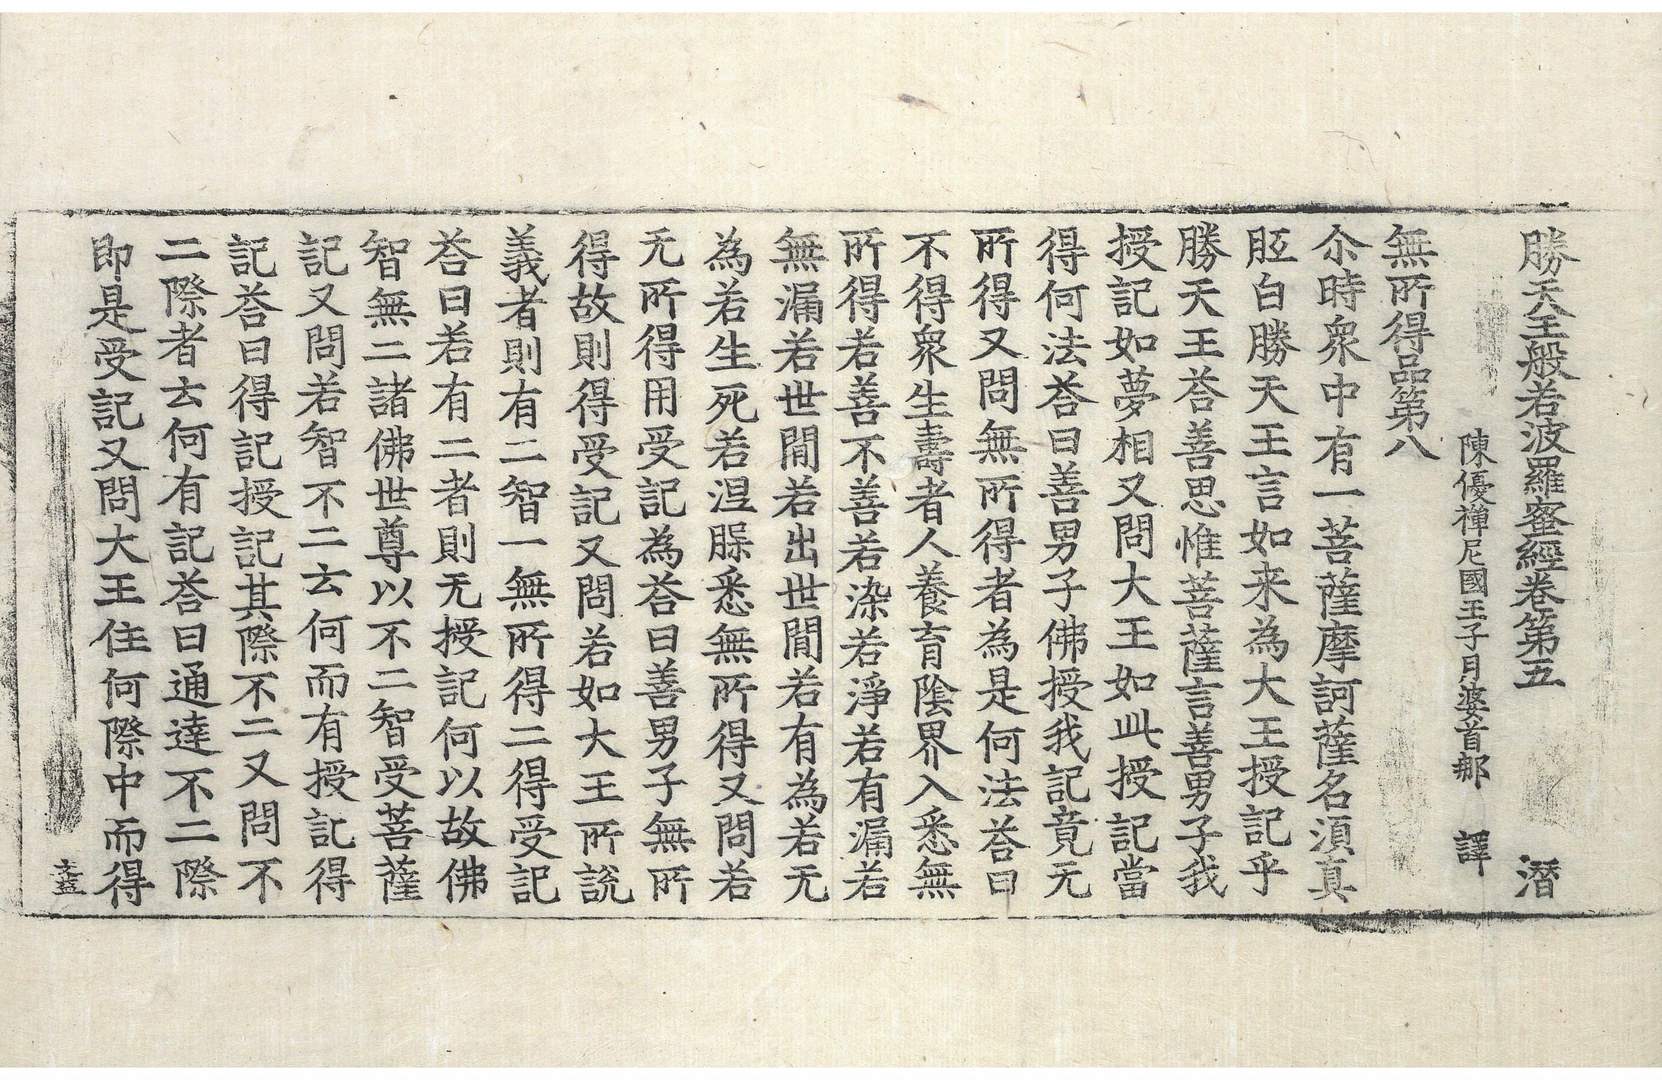 勝天王般若波羅蜜經卷第五 潛
陳優禪尼國王子月婆首那 譯
無所得品第八
尒時衆中有一菩薩摩訶薩名湏真
胝白勝天王言如来為大王授記乎
勝天王荅善思惟菩薩言善男子我
授記如夢相又問大王如此授記當
得何法荅曰善男子佛授我記竟无
所得又問無所得者為是何法荅曰
不得衆生壽者人養育陰界入悉無
所得若善不善若染若淨若有漏若
無漏若世閒若出世閒若有為若无
為若生死若涅槃悉無所得又問若
无所得用受記為荅曰善男子無所
得故則得受記又問若如大王所說
義者則有二智一無所得二得受記
荅曰若有二者則无授記何以故佛
智無二諸佛世尊以不二智受菩薩
記又問若智不二云何而有授記得
記荅曰得記授記其際不二又問不
二際者云何有記荅曰通達不二際
即是受記又問大王住何際中而得